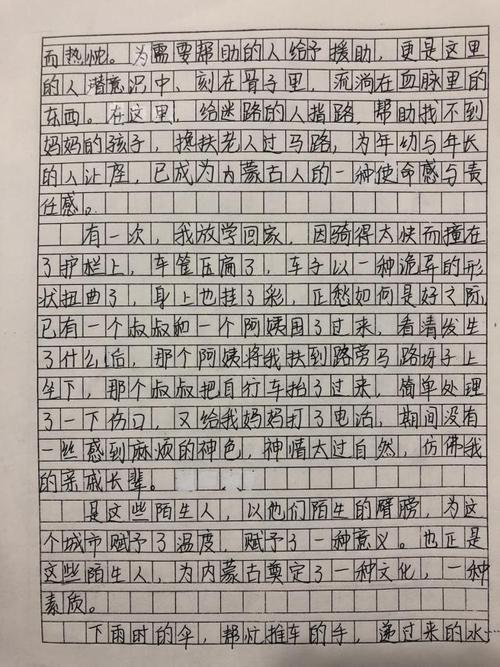 而热忱。为需要帮助的人给予援助，更是这里
的人潜意识中、刻在骨子里，流淌在血脉里的
东西。在这里，给迷路的人指路，帮助找不到
妈妈的孩子，搀扶老人过马路，为年幼与年长
的人让座，已成为内蒙古人的一种使命感与责
任感。
有一次，我放学回家，因骑得太快而撞在
了护栏上，车筐压扁了，车子以一种诡异的形
状扭曲了，身上也挂了彩，正愁如何是好之际，
已有一个叔叔和一个阿姨围了过来，看清发生
了什么后，那个阿姨将我扶到路旁马路牙子上
坐下，那个叔叔把自行车抬了过来，简单处理
了一下伤口，又给我妈妈打了电话，期间没有
一丝感到麻烦的神色，神情太过自然，仿佛我
的亲戚长辈。
是这些陌生人，以他们陌生的臂膀，为这
个城市赋予了温度，赋予了一种意义。也正是
这些陌生人，为内蒙古奠定了一种文化，一种
素质。
下雨时的伞，帮忙推车的手，递过来的水……